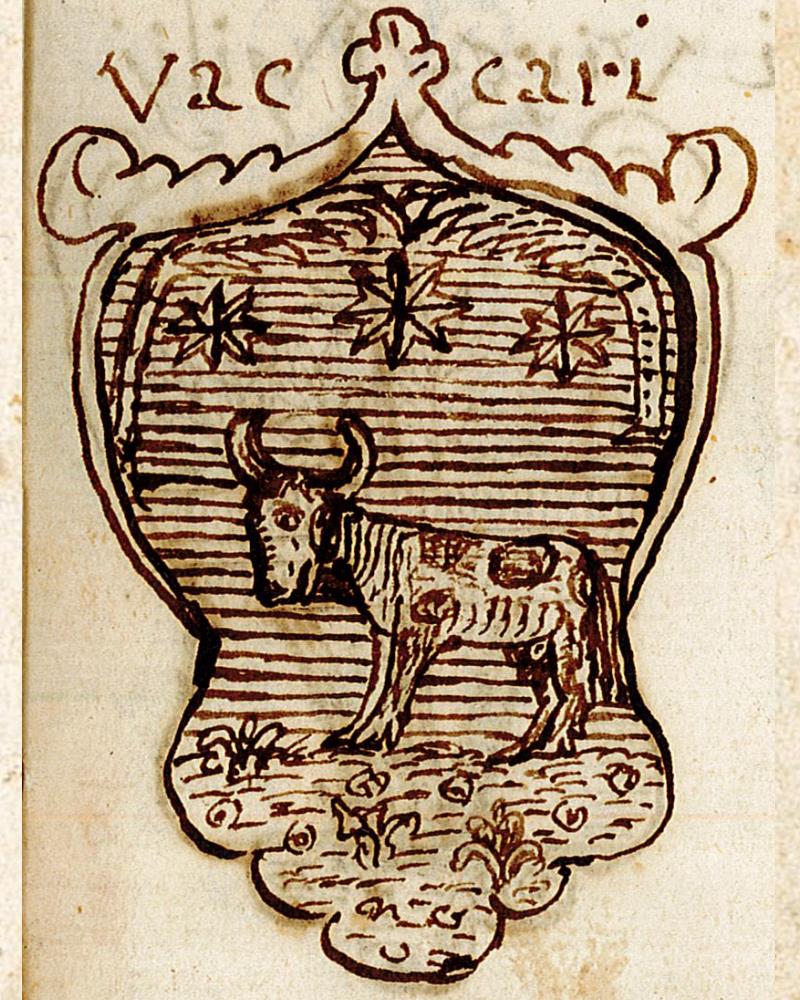 Vac cari